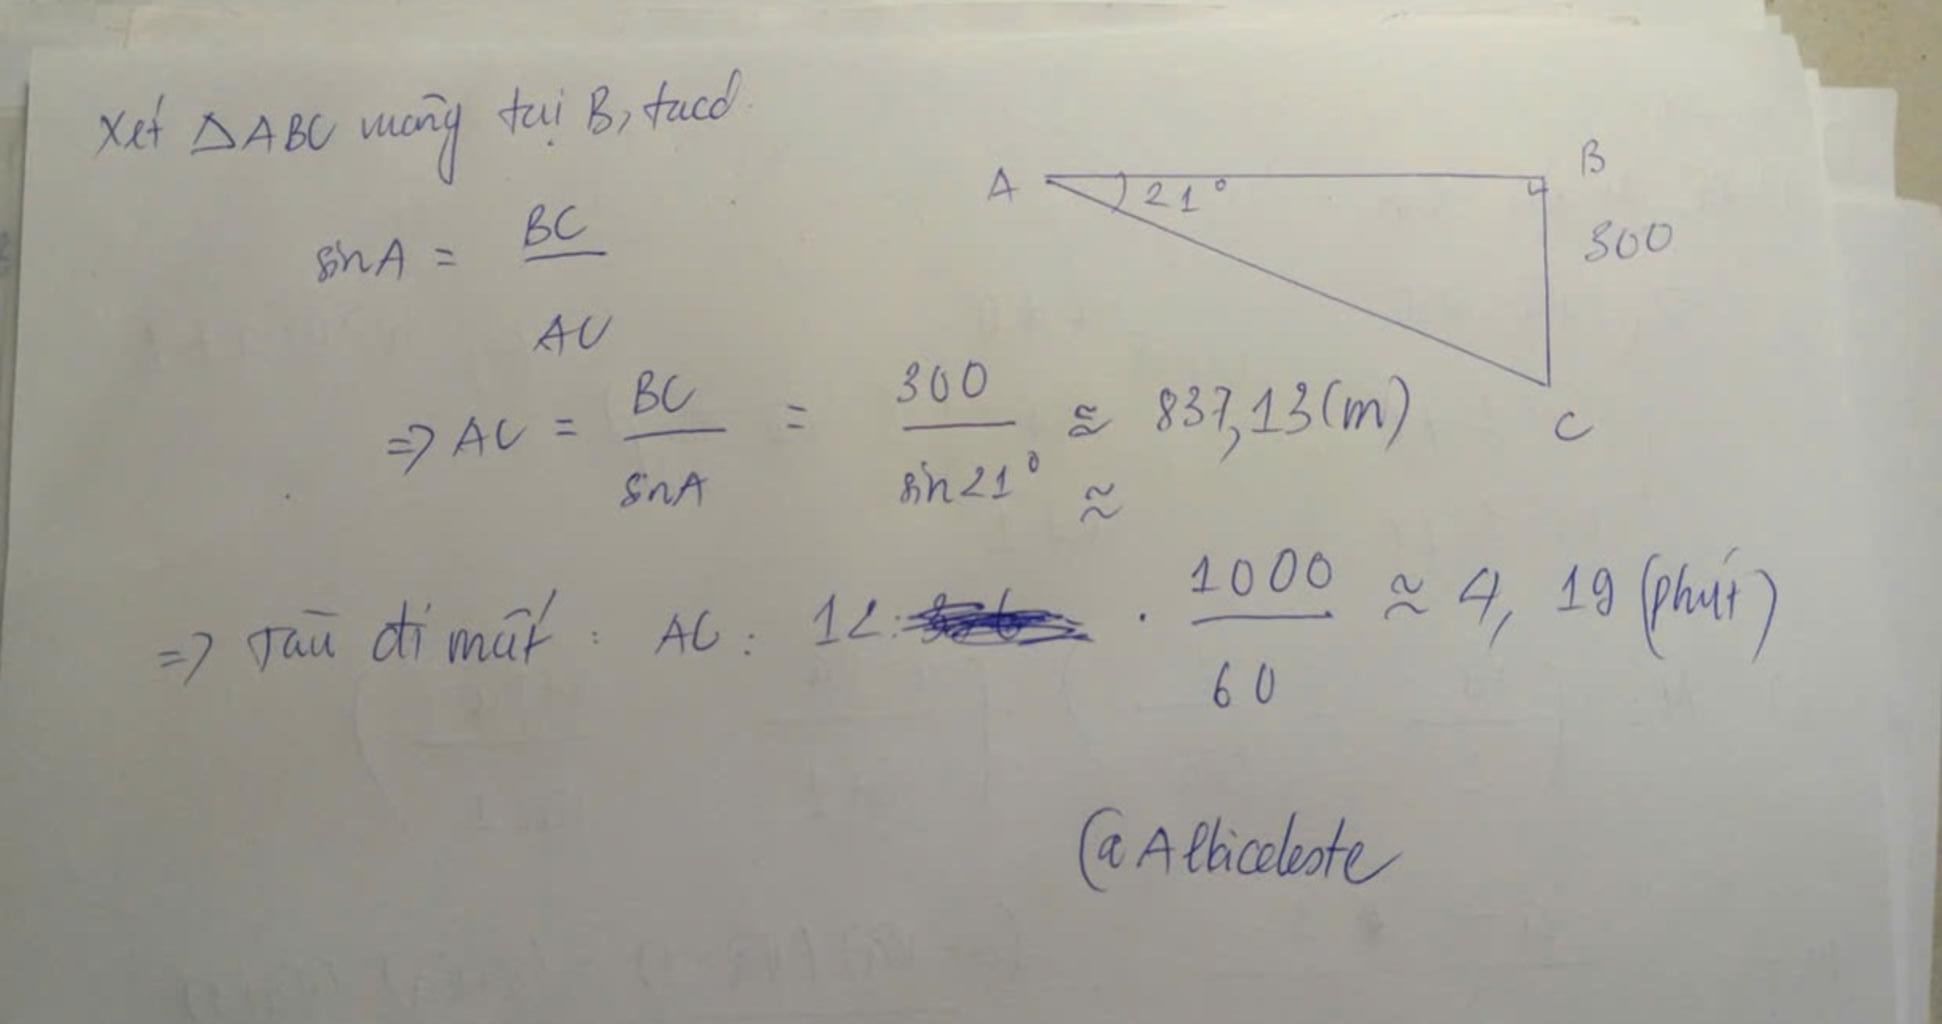 Xét ΔABC vuông tại B, ta có
sinA = BC / AC
A 21° B
300
C
=> AC = BC / sinA = 300 / sin21° ≈ 837,13 (m)
≈
=> Tàu đi mất : AC : 12 . 1000 / 60 ≈ 4,19 (phút)
@Albiceleste